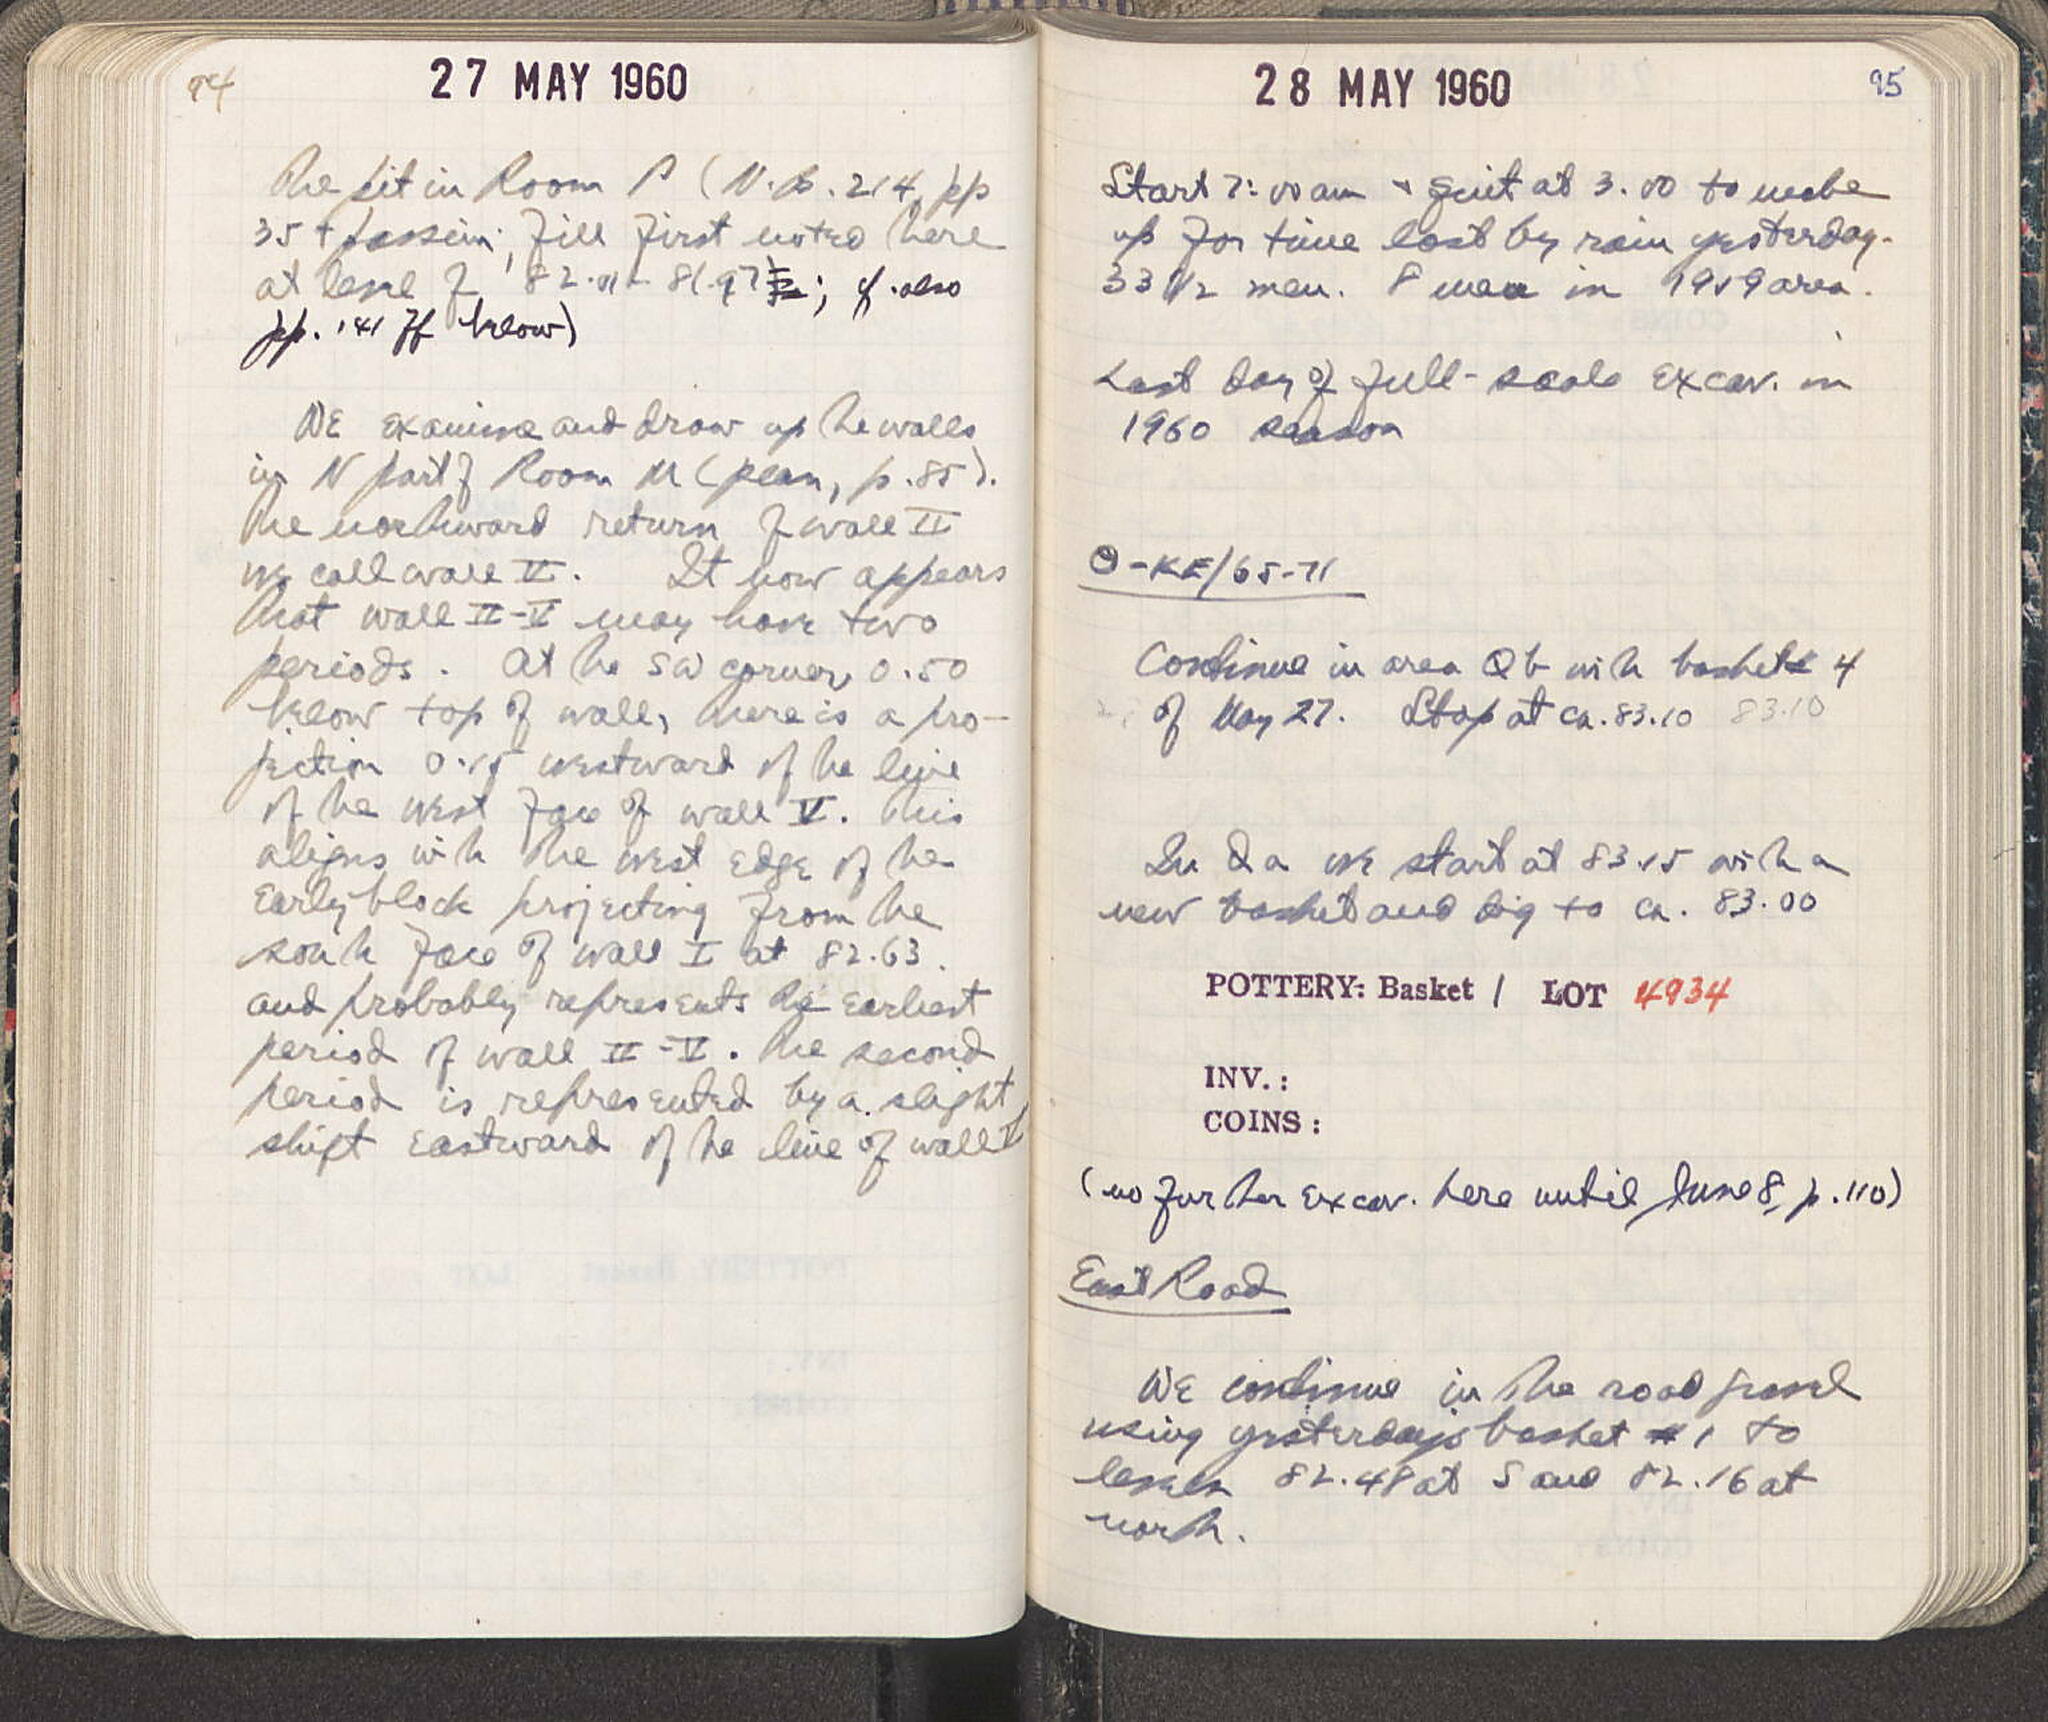 94
27 MAY 1960
The pit in Room P (N.B. 214, pp
35 + passim; fill first noted here
at level of 82.01 - 81.97; cf. also
pp. 141 ff below)
We examine and draw up the walls
in N part of Room M (plan, p. 85).
The northward return of wall II
we call wall V. It now appears
that wall II-V may have two
periods. At the SW corner, 0.50
below top of wall, there is a pro-
jection 0.15 westward of the line
of the west face of wall V. This
aligns with the west edge of the
Early block projecting from the
south face of wall I at 82.63.
and probably represents the earliest
period of wall II-V. The second
period is represented by a slight
shift eastward of the line of wall V
28 MAY 1960
95
Start 7:00 am + quit at 3.00 to make
up for time lost by rain yesterday.
33 1/2 men. 8 men in 1959 area.
Last day of full-scale excav. in
1960 season
Θ-KE/65-71
Continue in area Qb with basket 4
of May 27. Stop at ca. 83.10 83.10
In Qa we start at 83.15 with a
new basket and dig to ca. 83.00
POTTERY: Basket 1 LOT 4934
INV.:
COINS:
(no further excav. here until June 8, p. 110)
East Road
We continue in the road gravel
using yesterday's basket #1 to
levels 82.48 at S and 82.16 at
north.